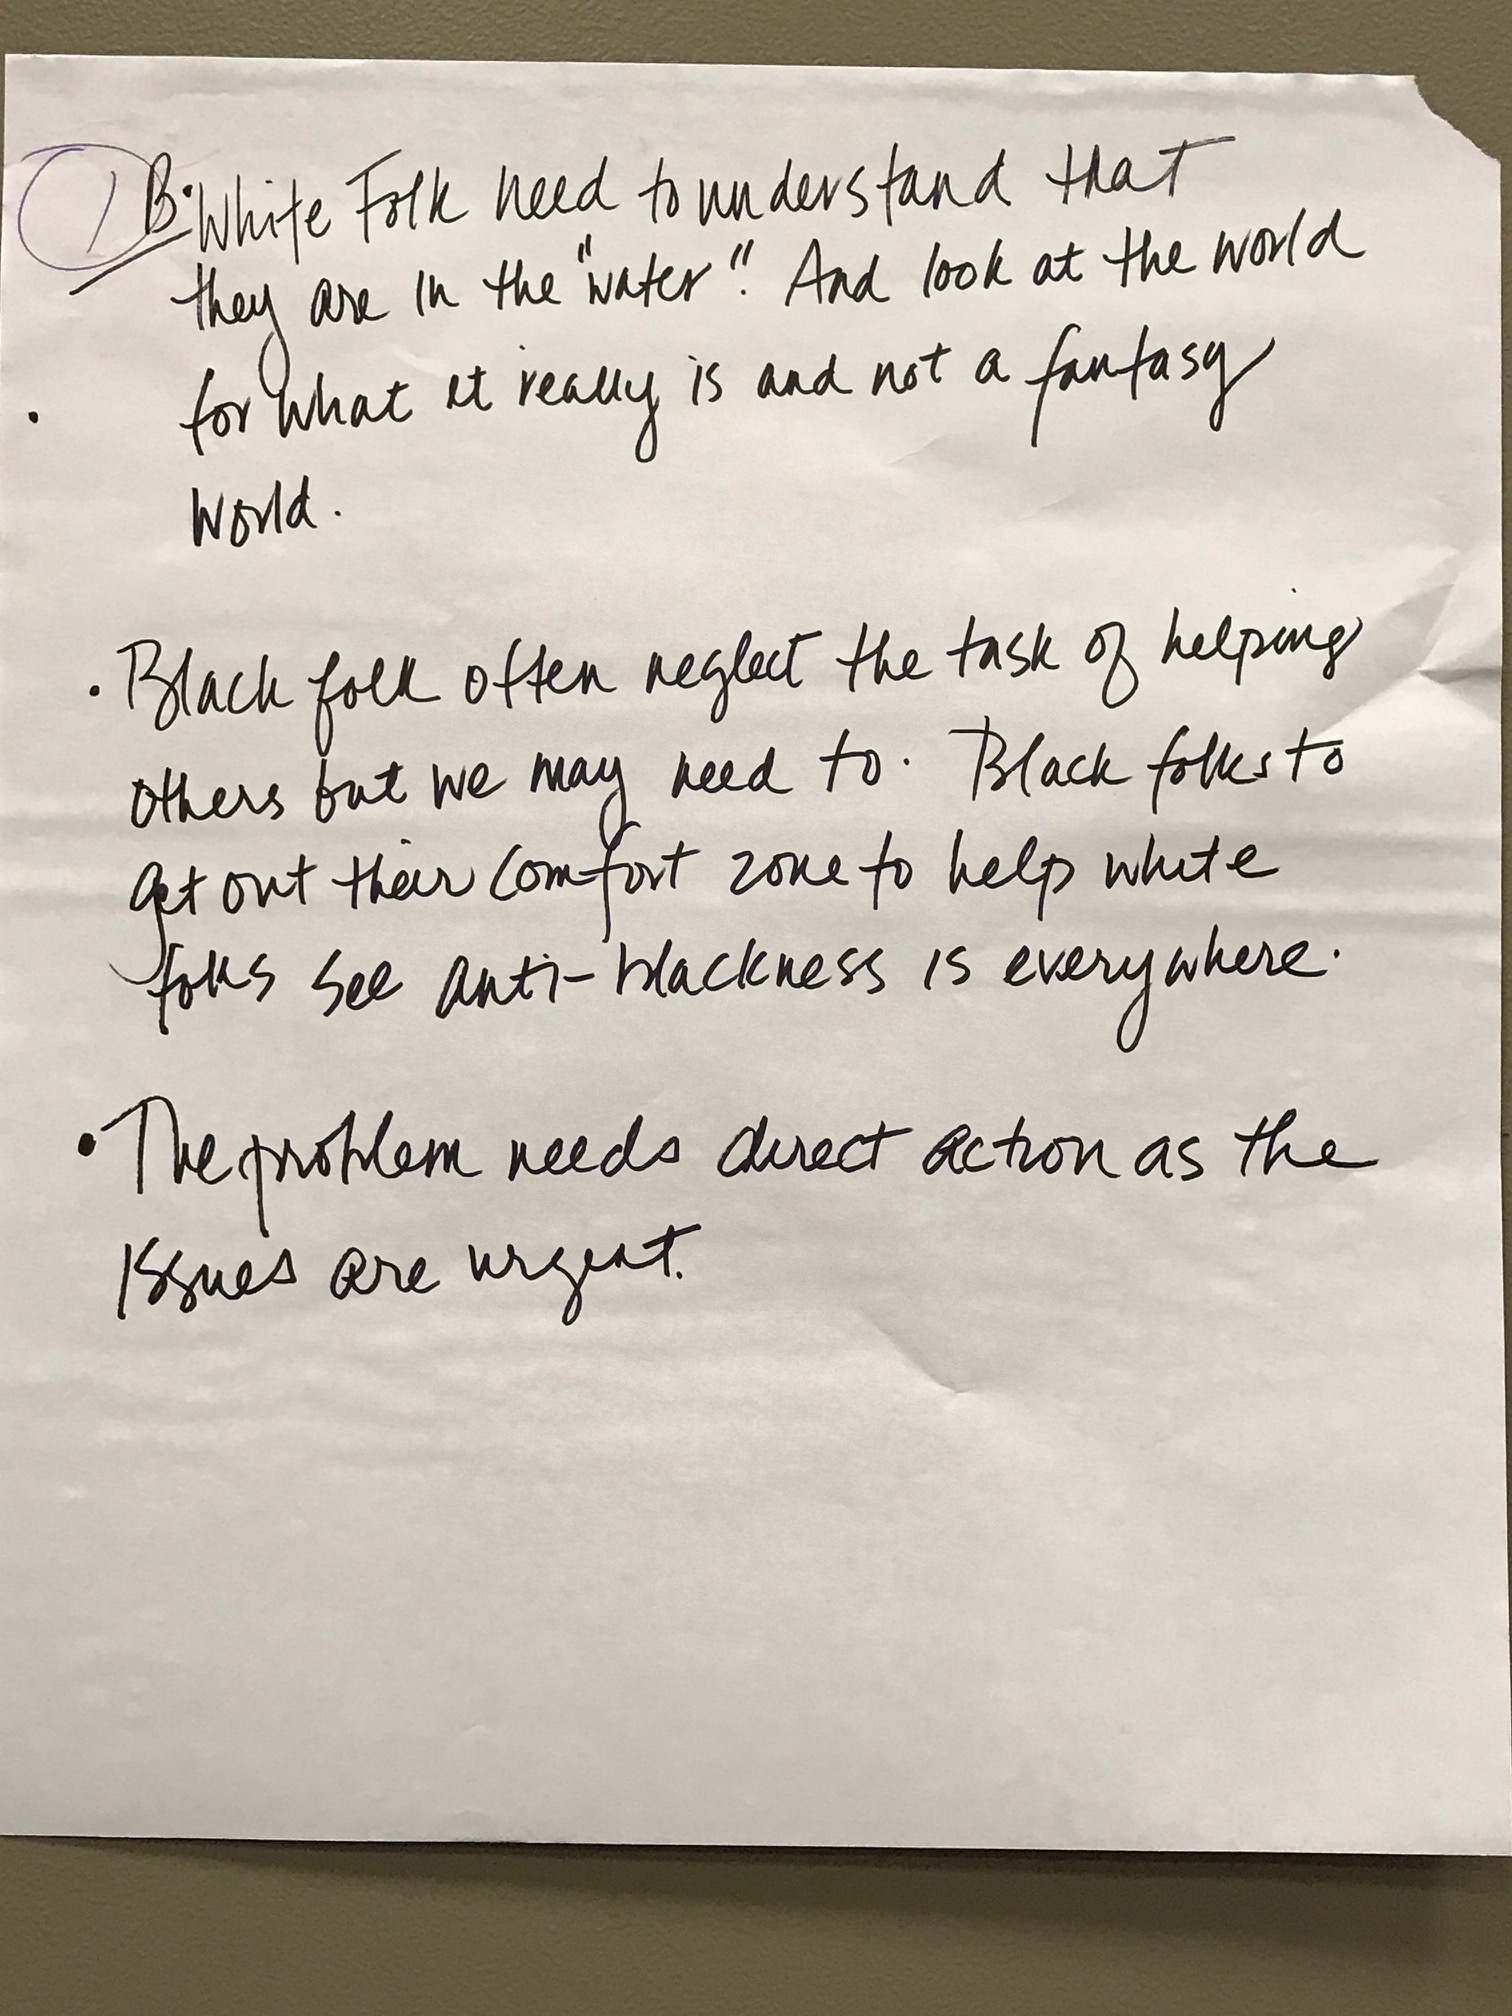 1 B. White Folk need to understand that
they are in the "water". And look at the world
for what it really is and not a fantasy
world.
• Black folk often neglect the task of helping
others but we may need to. Black folks to
get out their comfort zone to help white
folks see anti-blackness is everywhere.
• The problem needs direct action as the
issues are urgent.